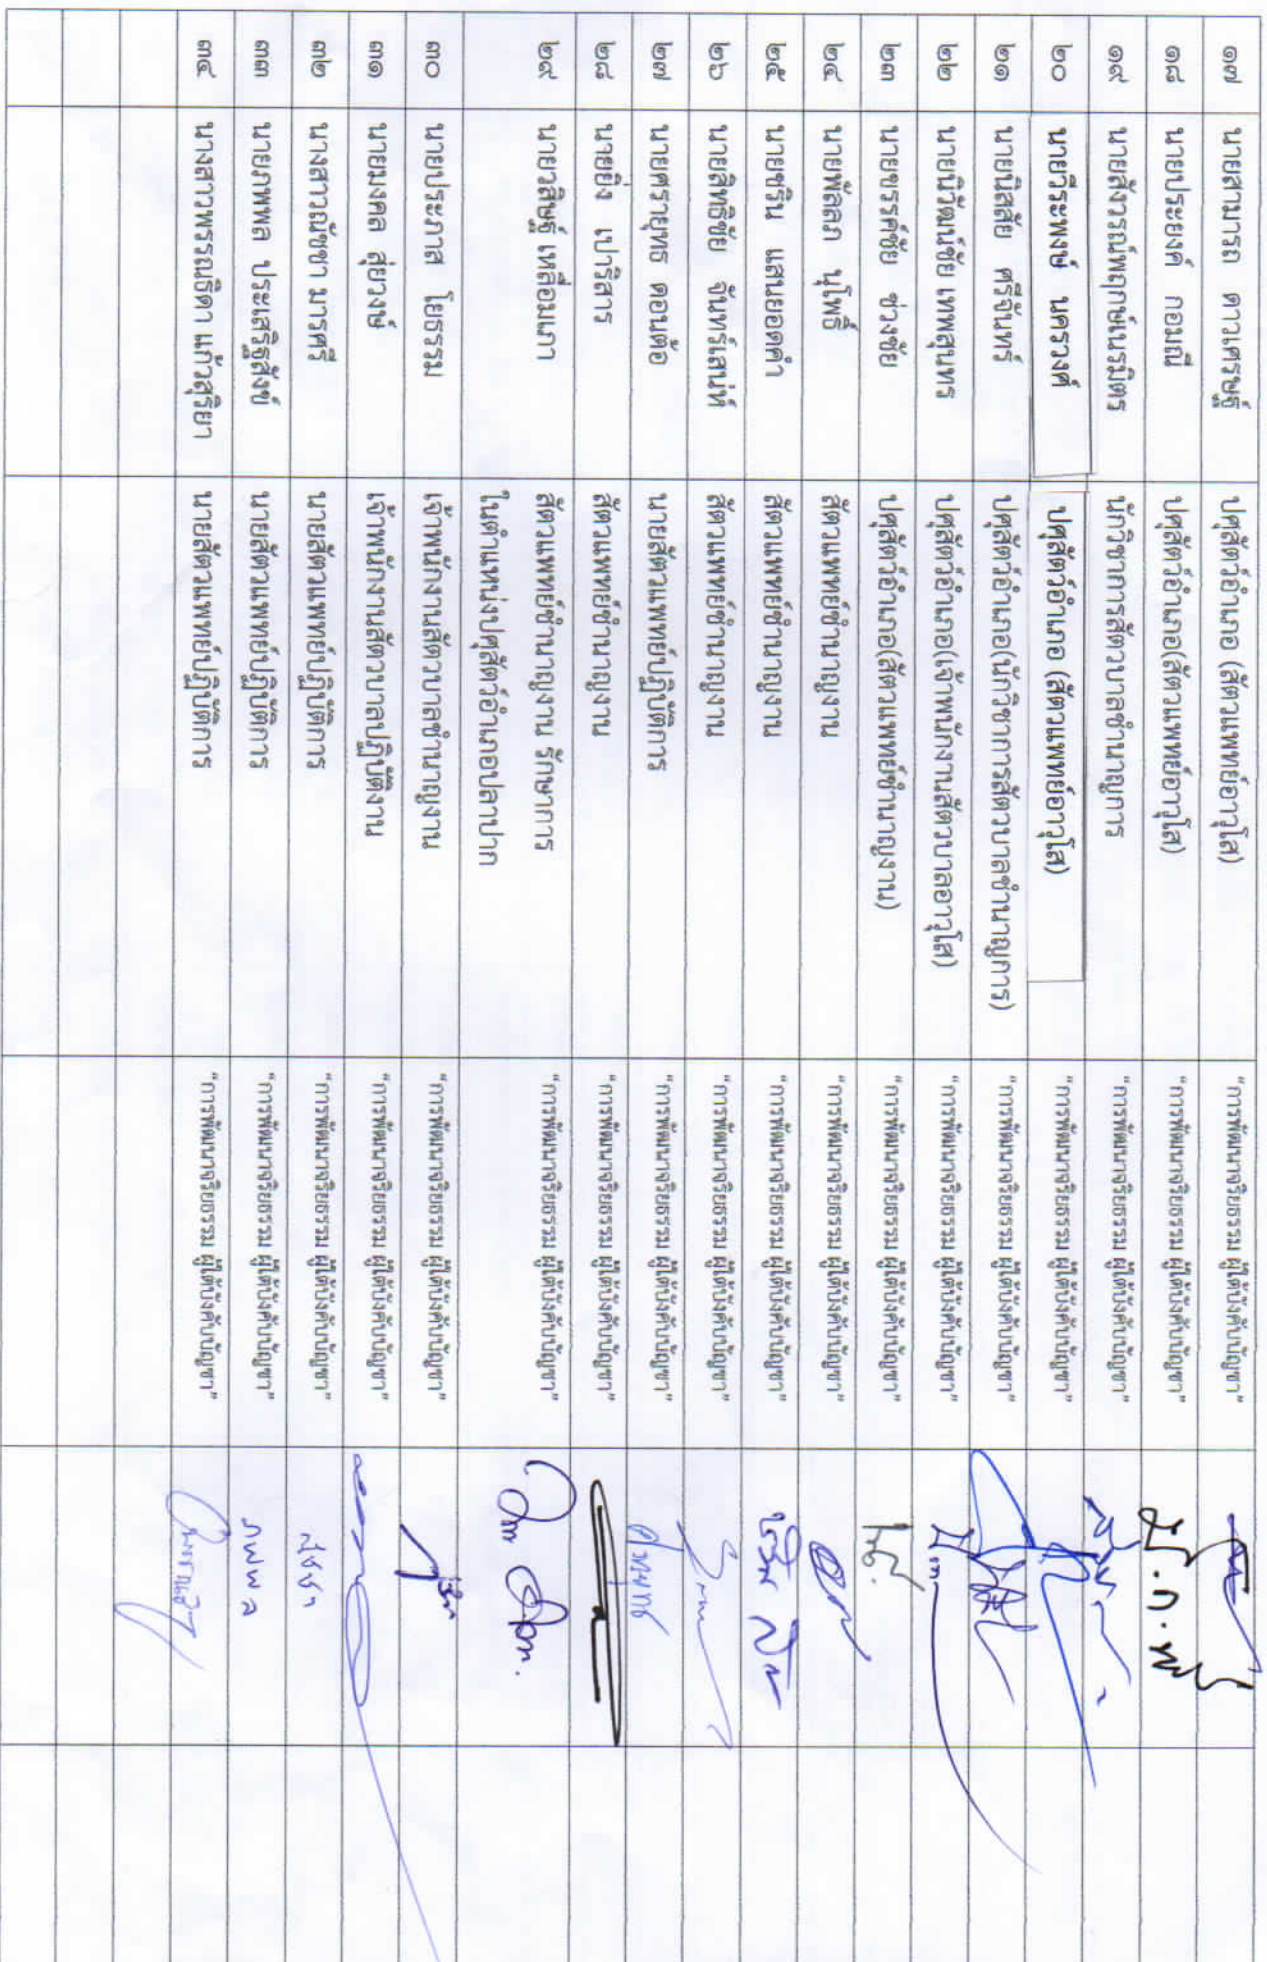 ๑๗ นายสามารถ ดาวเศรษฐ์ ปศุสัตว์อำเภอ (สัตวแพทย์อาวุโส) "การพัฒนาจริยธรรม ผู้ใต้บังคับบัญชา"
๑๘ นายประยงค์ กอมณี ปศุสัตว์อำเภอ(สัตวแพทย์อาวุโส) "การพัฒนาจริยธรรม ผู้ใต้บังคับบัญชา" ป.ก.
๑๙ นายสังวรณ์พฤกษ์เนรมิตร นักวิชาการสัตวบาลชำนาญการ "การพัฒนาจริยธรรม ผู้ใต้บังคับบัญชา"
๒๐ นายวีระพงษ์ นครวงศ์ ปศุสัตว์อำเภอ (สัตวแพทย์อาวุโส) "การพัฒนาจริยธรรม ผู้ใต้บังคับบัญชา"
๒๑ นายนิสสัย ศรีจันทร์ ปศุสัตว์อำเภอ(นักวิชาการสัตวบาลชำนาญการ) "การพัฒนาจริยธรรม ผู้ใต้บังคับบัญชา"
๒๒ นายนิวัฒน์ชัย เทพสุนทร ปศุสัตว์อำเภอ(เจ้าพนักงานสัตวบาลอาวุโส) "การพัฒนาจริยธรรม ผู้ใต้บังคับบัญชา"
๒๓ นายขรรค์ชัย ช่างชัย ปศุสัตว์อำเภอ(สัตวแพทย์ชำนาญงาน) "การพัฒนาจริยธรรม ผู้ใต้บังคับบัญชา"
๒๔ นายพัลลภ นุโพธิ์ สัตวแพทย์ชำนาญงาน "การพัฒนาจริยธรรม ผู้ใต้บังคับบัญชา"
๒๕ นายชริน แสนยอดคำ สัตวแพทย์ชำนาญงาน "การพัฒนาจริยธรรม ผู้ใต้บังคับบัญชา"
๒๖ นายสิทธิชัย จันทร์เสน่ห์ สัตวแพทย์ชำนาญงาน "การพัฒนาจริยธรรม ผู้ใต้บังคับบัญชา"
๒๗ นายศรายุทธ ดอนต้อ นายสัตวแพทย์ปฏิบัติการ "การพัฒนาจริยธรรม ผู้ใต้บังคับบัญชา" ศรายุทธ
๒๘ นายยิ่ง เปาริสาร สัตวแพทย์ชำนาญงาน "การพัฒนาจริยธรรม ผู้ใต้บังคับบัญชา"
๒๙ นายวสิษฐ์ เหลื่อมเภา สัตวแพทย์ชำนาญงาน รักษาการ "การพัฒนาจริยธรรม ผู้ใต้บังคับบัญชา"
ในตำแหน่งปศุสัตว์อำเภอปลาปาก
๓๐ นายประภาส โยธรรม เจ้าพนักงานสัตวบาลชำนาญงาน "การพัฒนาจริยธรรม ผู้ใต้บังคับบัญชา"
๓๑ นายมงคล สุ่ยวงษ์ เจ้าพนักงานสัตวบาลปฏิบัติงาน "การพัฒนาจริยธรรม ผู้ใต้บังคับบัญชา"
๓๒ นางสาวณัชชา มารศรี นายสัตวแพทย์ปฏิบัติการ "การพัฒนาจริยธรรม ผู้ใต้บังคับบัญชา" ณัชชา
๓๓ นายภพพล ประเสริฐสังข์ นายสัตวแพทย์ปฏิบัติการ "การพัฒนาจริยธรรม ผู้ใต้บังคับบัญชา" ภพพล
๓๔ นางสาวพรรณธิดา แก้วสุริยา นายสัตวแพทย์ปฏิบัติการ "การพัฒนาจริยธรรม ผู้ใต้บังคับบัญชา"